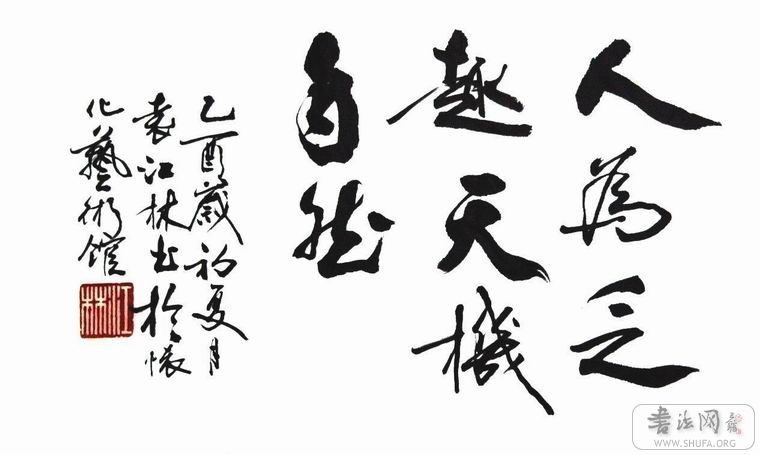 人為乏
趣天機
自然
乙酉歲初夏月
袁江林书於懷
化藝術館
江林
书法网
WWW.SHUFA.ORG